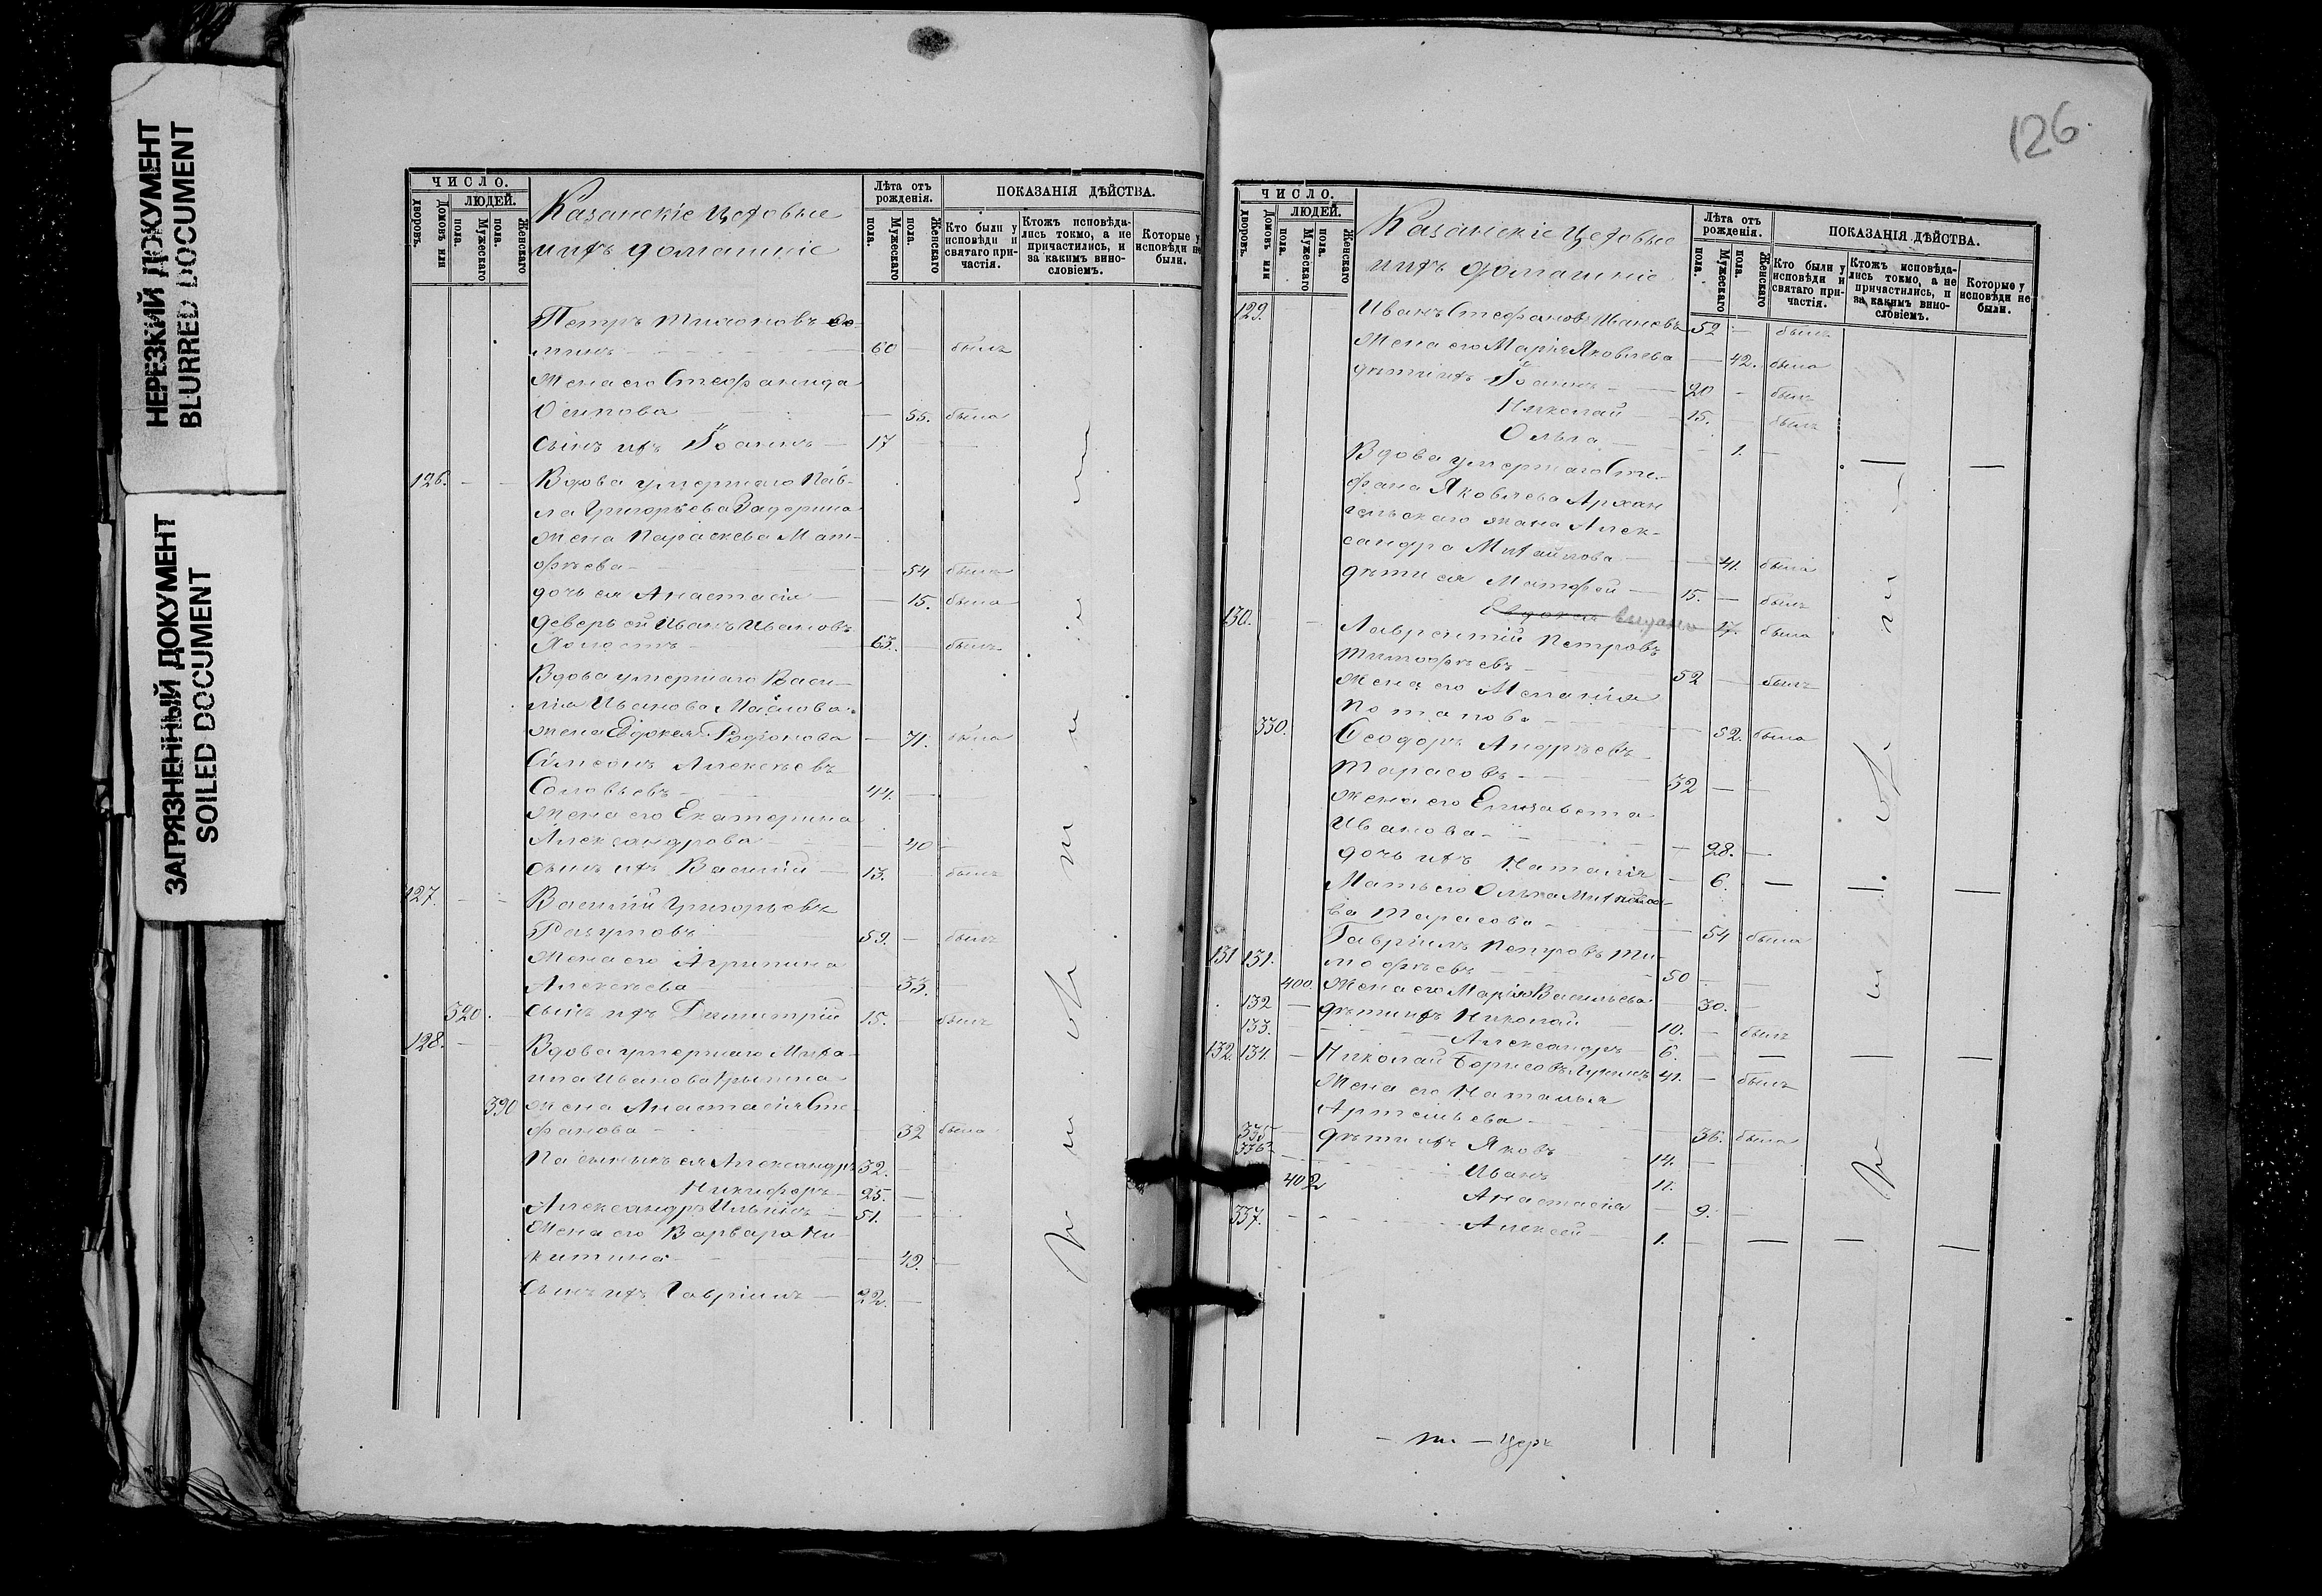 НЕРЕЗКИЙ ДОКУМЕНТ
BLURRED DOCUMENT
ЗАГРЯЗНЕННЫЙ ДОКУМЕНТ
SOILED DOCUMENT
ЧИСЛО.
ЛЮДЕЙ.
Домовъ или дворовъ.
Мужескаго пола.
Женскаго пола.
Казанскіе Цеховые
ихъ домашніе
Лѣта отъ рожденія.
Мужескаго пола.
Женскаго пола.
ПОКАЗАНІЯ ДѢЙСТВА.
Кто были у исповѣди и святаго причастія.
Ктожъ исповѣдались токмо, а не причастились, и за какимъ винословіемъ.
Которые у исповѣди не были.
Петръ Тихоновъ
60 — былъ
Жена его Стефанида
Осипова — 55. была
сынъ ихъ Іоаннъ — 17
126. Вдова умершаго Пав-
ла Григорьева
жена Параскева Мат-
фѣева — 54 была
дочь ея Анастасія — 15. была
деверь ей Иванъ Ивановъ
63. — былъ
Вдова умершаго Васи-
лія Иванова Маслова
жена Евдокія Родіонова — 71. была
Симеонъ Алексѣевъ
Соловьевъ — 44. —
Жена его Екатерина
Александрова — 40 —
сынъ ихъ Василій — 13. — былъ
127. Василій Григорьевъ
Разумовъ 59. — былъ
Жена его Агрипина
Алексѣева — 33. —
320. сынъ ихъ Димитрій 15. — былъ
128. Вдова умершаго Миха-
ила Иванова
390 жена Анастасія Сте-
фанова — 32 была
Пасынки ея Александръ 32. —
Никифоръ — 25. —
Александръ Ильинъ — 51. —
Жена его Варвара Ни-
китина — 49. —
Сынъ ихъ Гавріилъ — 22. —
126
ЧИСЛО.
ЛЮДЕЙ.
Домовъ или дворовъ.
Мужескаго пола.
Женскаго пола.
Казанскіе Цеховые
ихъ домашніе
Лѣта отъ рожденія.
Мужескаго пола.
Женскаго пола.
ПОКАЗАНІЯ ДѢЙСТВА.
Кто были у исповѣди и святаго причастія.
Ктожъ исповѣдались токмо, а не причастились, и за какимъ винословіемъ.
Которые у исповѣди не были.
129. Иванъ Стефановъ Ивановъ 52 — былъ
Жена его Марія Яковлева — 42. была
дѣти ихъ Іоаннъ — 20 — былъ
Николай — 15. — былъ
Ольга — 1. —
Вдова умершаго Сте-
фана Яковлева Архан
гельскаго жена Алек-
сандра Михайлова — 41. была
дѣти ея Матфей — 15. — былъ
Евдокія 17. была
130. Лаврентій Петровъ
Тимофѣевъ — 52 — былъ
Жена его Меланія
Потапова — 52. была
330. Ѳеодоръ Андреевъ
Тарасовъ — 32 — —
жена его Елизавета
Иванова — 28. —
дочь ихъ Наталія — 6. —
Мать его Ольга Михайло-
ва Тарасова — 54 была
131 131. Гавріилъ Петровъ Ти-
мофѣевъ — 50 —
400. Жена его Марія Васильева — 30. —
132 — дѣти ихъ Николай — 10. — былъ
133. Александръ — 6. —
132. 134. — Николай Борисовъ 41. — былъ
Жена его Наталья
Артемьева — 36. была
335 дѣти ихъ Яковъ 14. —
336 Иванъ 11.
402 Анастасія — 9. —
337. Алексѣй — 1. —